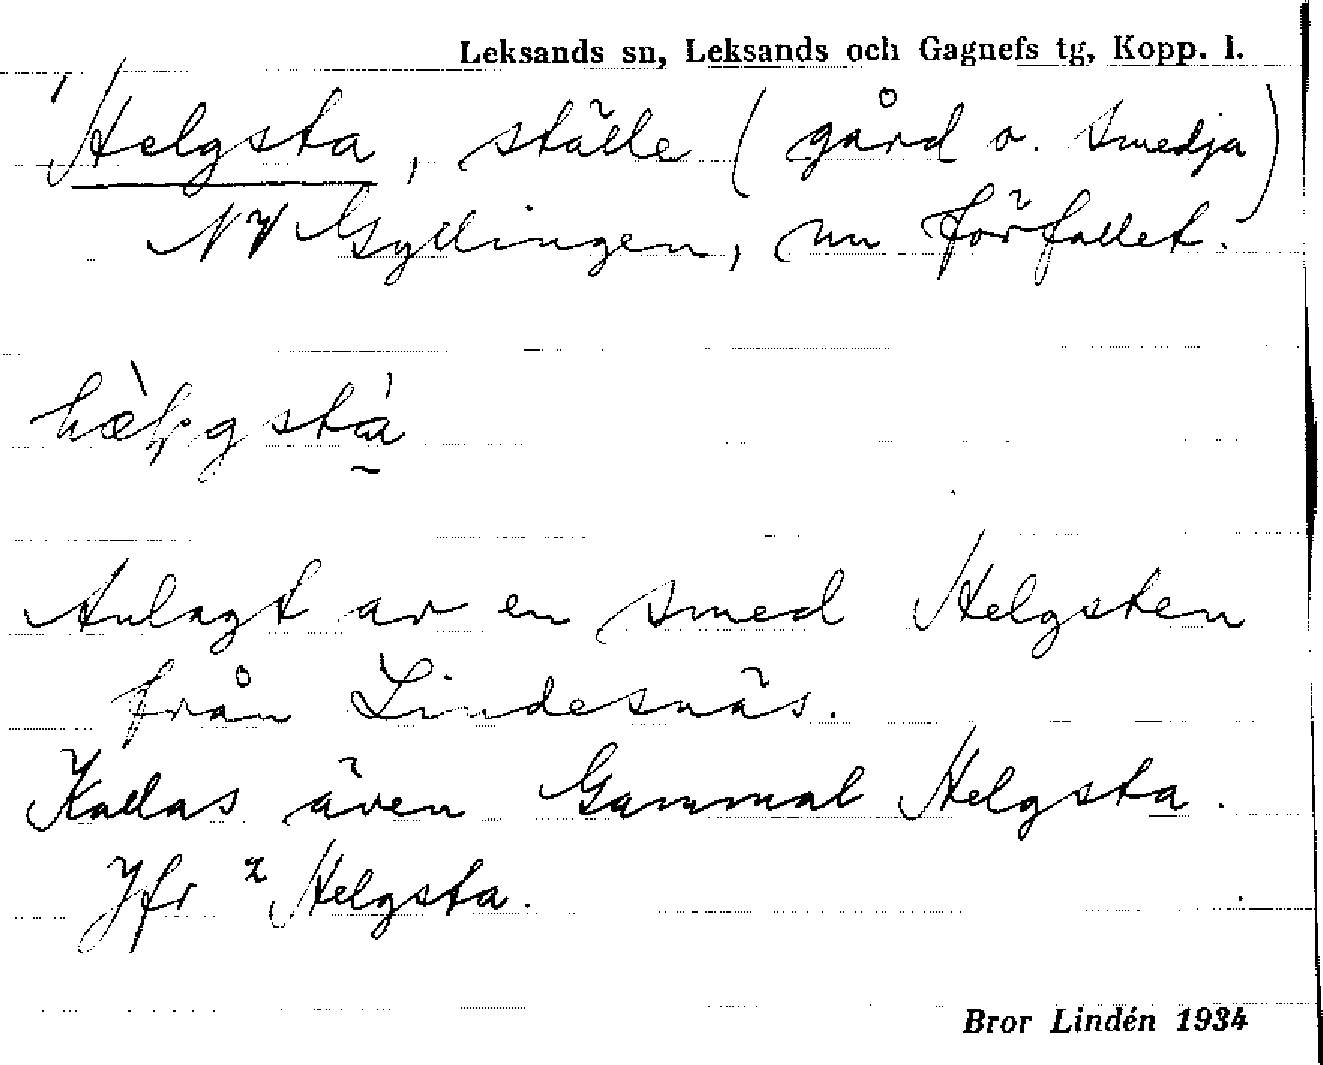 Leksands sn, Leksands och Gagnefs tg, Kopp. l.
¹Helgsta, ställe (gård o. smedja)
NV Gyllingen, nu förfallet.
Anlagt av en smed Helgsten
från Lindesnäs.
Kallas även Gammal Helgsta.
Jfr ²Helgsta.
Bror Lindén 1934